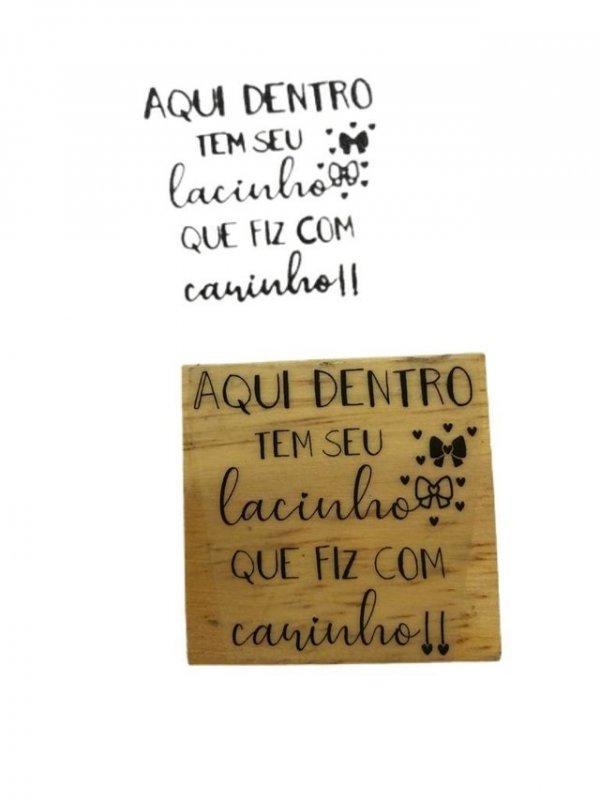 AQUI DENTRO
TEM SEU
lacinho
QUE FIZ COM
carinho!!
AQUI DENTRO
TEM SEU
lacinho
QUE FIZ COM
carinho!!